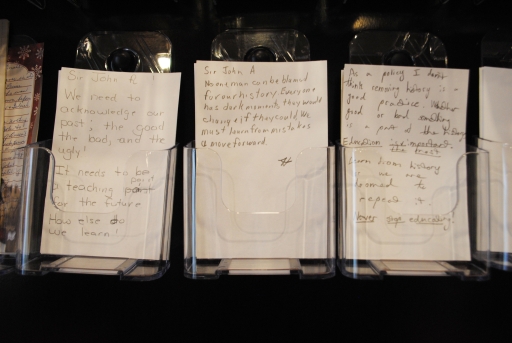 Sir John A
We need to
acknowledge our
past; the good
the bad, and the
ugly!
It needs to be
a teaching point
for the future
How else do
We learn!
Sir John A
No one man can be blamed
for our history. Everyone
has dark moments they would
change if they could. We
must learn from mistakes
& move forward.
As a policy I don't
think removing history is a
good practice. Whether
good or bad something
is a part of the history
Education is important
learn from history
we are
doomed to
repeat it.
education